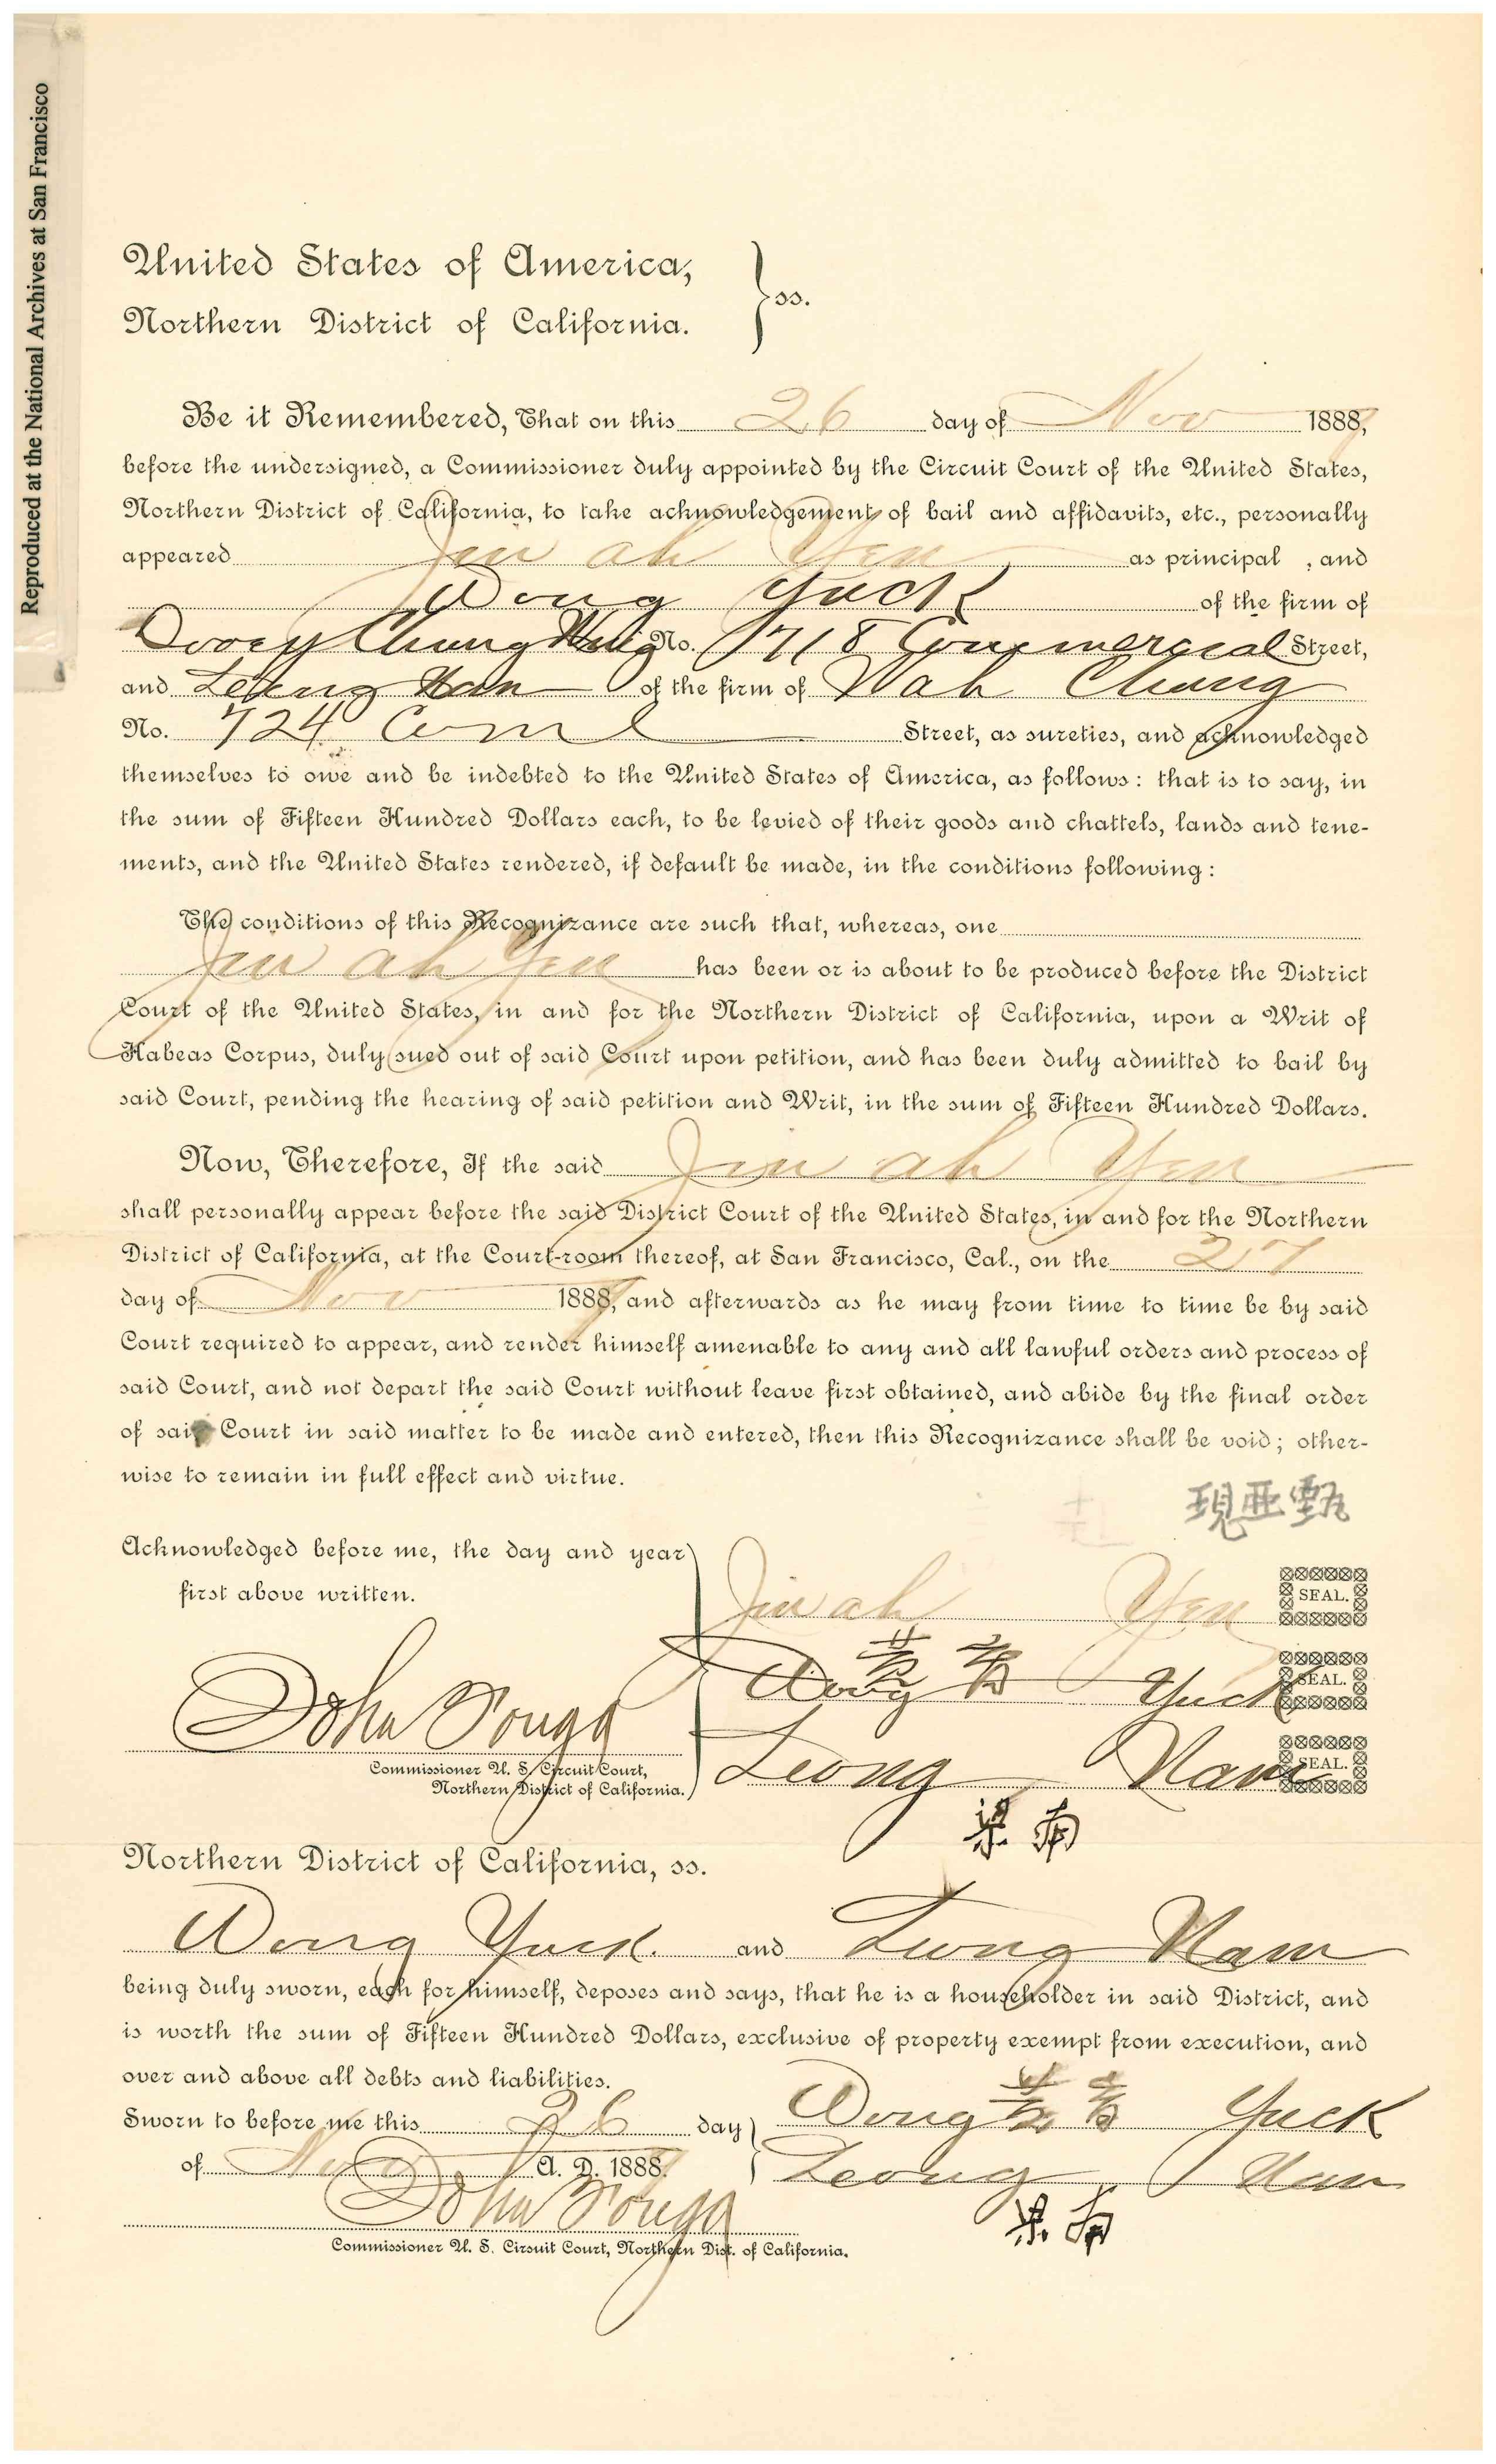 Reproduced at the National Archives at San Francisco
United States of America,
Northern District of California. } ss.
Be it Remembered, That on this 26 day of Nov 1889,
before the undersigned, a Commissioner duly appointed by the Circuit Court of the United States,
Northern District of California, to take acknowledgement of bail and affidavits, etc., personally
appeared Jin ah Yen as principal , and
Wong Yuck of the firm of
Chung No. 718 Commercial Street,
and Leong Nam of the firm of Wah Chung
No. 724 Coml Street, as sureties, and acknowledged
themselves to owe and be indebted to the United States of America, as follows: that is to say, in
the sum of Fifteen Hundred Dollars each, to be levied of their goods and chattels, lands and tene-
ments, and the United States rendered, if default be made, in the conditions following:
The conditions of this Recognizance are such that, whereas, one
Jin ah Yen has been or is about to be produced before the District
Court of the United States, in and for the Northern District of California, upon a Writ of
Habeas Corpus, duly sued out of said Court upon petition, and has been duly admitted to bail by
said Court, pending the hearing of said petition and Writ, in the sum of Fifteen Hundred Dollars.
Now, Therefore, If the said Jin ah Yen
shall personally appear before the said District Court of the United States, in and for the Northern
District of California, at the Court-room thereof, at San Francisco, Cal., on the 27
day of Nov 1889, and afterwards as he may from time to time be by said
Court required to appear, and render himself amenable to any and all lawful orders and process of
said Court, and not depart the said Court without leave first obtained, and abide by the final order
of said Court in said matter to be made and entered, then this Recognizance shall be void; other-
wise to remain in full effect and virtue.
現亜甄
Acknowledged before me, the day and year
first above written.
Jin ah Yen SEAL.
Wong 黄 Yuck SEAL.
John Fouga
Leong Nam SEAL.
Commissioner U. S. Circuit Court,
Northern District of California.
梁南
Northern District of California, ss.
Wong Yuck and Leong Nam
being duly sworn, each for himself, deposes and says, that he is a householder in said District, and
is worth the sum of Fifteen Hundred Dollars, exclusive of property exempt from execution, and
over and above all debts and liabilities.
Sworn to before me this 26 day
of Nov A. D. 1889.
Wong 黄 Yuck
Leong Nam
John Fouga
梁南
Commissioner U. S. Circuit Court, Northern Dist. of California.